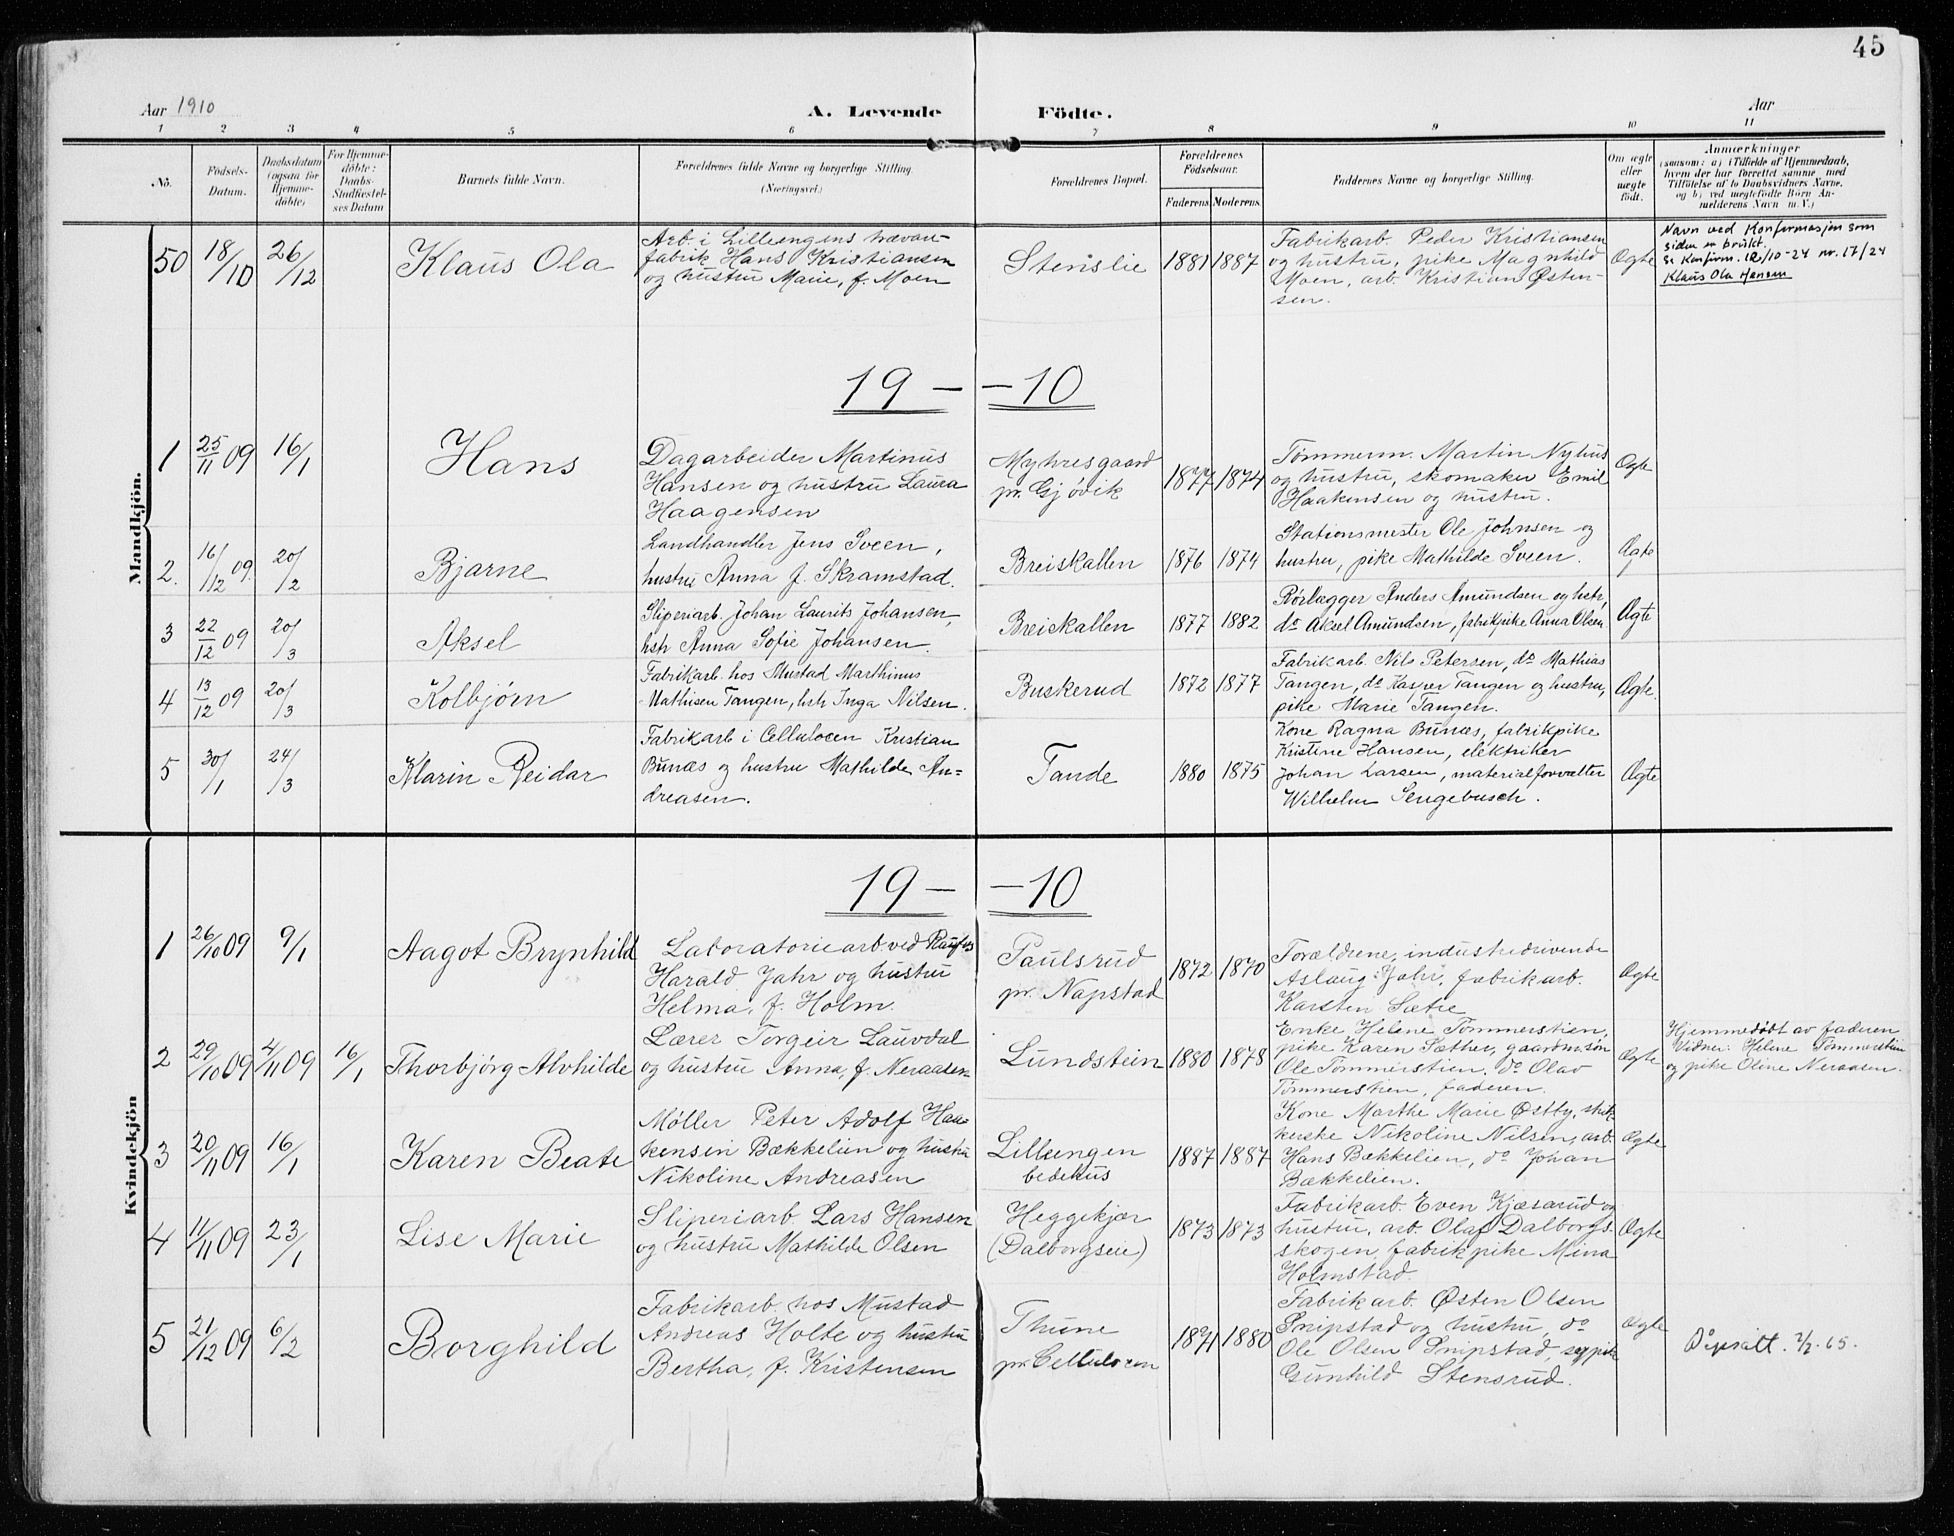 45
Aar 1910
A. Levende Födte.
Aar
1 2 3 4 5 6 7 8 9 10 11
No.
Födsels-
Datum.
Daabsdatum
(ogsaa for
Hjemme-
döbte)
For Hjemme-
döbte:
Daabs-
Stadfæstel-
ses Datum
Barnets fulde Navn.
Forældrenes fulde Navne og borgerlige Stilling.
(Næringsvei.)
Forældrenes Bopæl.
Forældrenes
Födselsaar.
Faderens. Moderens.
Faddernes Navne og borgerlige Stilling.
Om ægte
eller
uægte
født.
Anmærkninger
(saasom: a) i Tilfælde af Hjemmedaab,
hvem der har forrettet samme, med
Tilföielse af to Daabsvidners Navne,
og b) ved uægtefödte Börn An-
melderens Navn m. V.)
Mandkjön.
50 18/10 26/12
Klaus Ola
Arb. i Lilleengens trævare-
fabrik Hans Kristiansen
og hustru Marie, f. Moen
Stenslie
1881 1887
Fabrikarb. Peder Kristiansen
og hustru, pike Magnhild
Moen, arb. Kristian Østen-
sen.
Ægte
Navn ved Konfirmasjon som
siden er brukt.
Se Konfirm. 12/10-24 nr. 17/24
Klaus Ola Hansen
19 — — 10
1 25/11 09 16/1
Hans
Dagarbeider Martinus
Hansen og hustru Laura
Haagensen
Myhresgaard
pr. Gjøvik
1877 1874
Tømmerm. Martin Nyhus
og hustru, skomaker Emil
Haakensen og hustru.
Ægte
2. 16/12 09. 20/2
Bjarne
Landhandler Jens Sveen,
hustru Anna f. Skramstad.
Breiskallen
1876 1874
Stationsmester Ole Johnsen og
hustru, pike Mathilde Sveen.
Ægte
3 22/12 09 20/3
Aksel
Sliperiarb. Johan Laurits Johansen,
hstr Anna Sofie Johansen.
Breiskallen
1877 1882
Rørlægger Anders Amundsen og hstr,
do Aksel Amundsen, fabrikpike Anna Olsen
Ægte
4 13/12 09 20/3
Kolbjørn
Fabrikarb. hos Mustad Marthinus
Mathisen Tangen, hstr Inga Nilsen.
Buskerud
1872 1877
Fabrikarb. Nils Petersen, do Mathias
Tangen, do Kasper Tangen og hustru,
pike Marie Tangen.
Ægte.
5 30/1 24/3
Klarin Reidar
Fabrikarb i Cellulosen Kristian
Bunæs og hustru Mathilde An-
dreasen.
Tande
1880 1875
Kone Ragna Bunæs, fabrikpike
Kristine Hansen, elektriker
Johan Larsen, materialforvalter
Wilhelm Sengebusch.
Ægte
Kvindekjön
19 — — 10
1 26/10 09 9/1
Aagot Brynhild
Laboratoriearb ved Raufos
Harald Jahr og hustru
Helma, f. Holm.
Paulsrud
pr. Napstad
1872 1870
Forældrene, industridrivende
Aslaug Jahr, fabrikarb.
Karsten Sætre
Ægte
2 29/10 09 4/11 09 16/1
Thorbjørg Alvhilde
Lærer Torgeir Lauvdal
og hustru Anna, f. Neraasen
Lundstein
1880 1878
Enke Helene Tømmerstien,
pike Karen Sæther, gaardm.søn
Ole Tømmerstien, do Olav
Tømmerstien, faderen.
Ægte
Hjemmedøbt av faderen
Vidner: Helene Tømmerstien
og pike Oline Neraasen.
3 20/11 09 16/1
Karen Beate
Møller Peter Adolf Haa-
kensen Bækkelien og hustru
Nikoline Andreasen
Lilleengen
bedehus
1887 1887
Kone Marthe Marie Østby,
Nikoline Nilsen, arb.
Hans Bækkelien, do Johan
Bækkelien.
Ægte
4 11/11 09 23/1
Lise Marie
Sliperiarb. Lars Hansen
og hustru Mathilde Olsen
Heggekjær
(Dalborgseie)
1873 1873
Fabrikarb. Even Kjæsarud og
hustru, arb. Olaf Dalborgs-
skogen, fabrikpike Mina
Holmstad.
Ægte
5 21/12 09 6/2
Borghild
Fabrikarb. hos Mustad
Andreas Holte og hustru
Bertha, f. Kristensen
Thune
pr. Cellulosen
1871 1880
Fabrikarb. Østen Olsen
Snipstad og hustru, do
Ole Olsen Snipstad, sypike
Gunhild Stensrud.
Ægte
Dåpsatt. 2/2. 65.